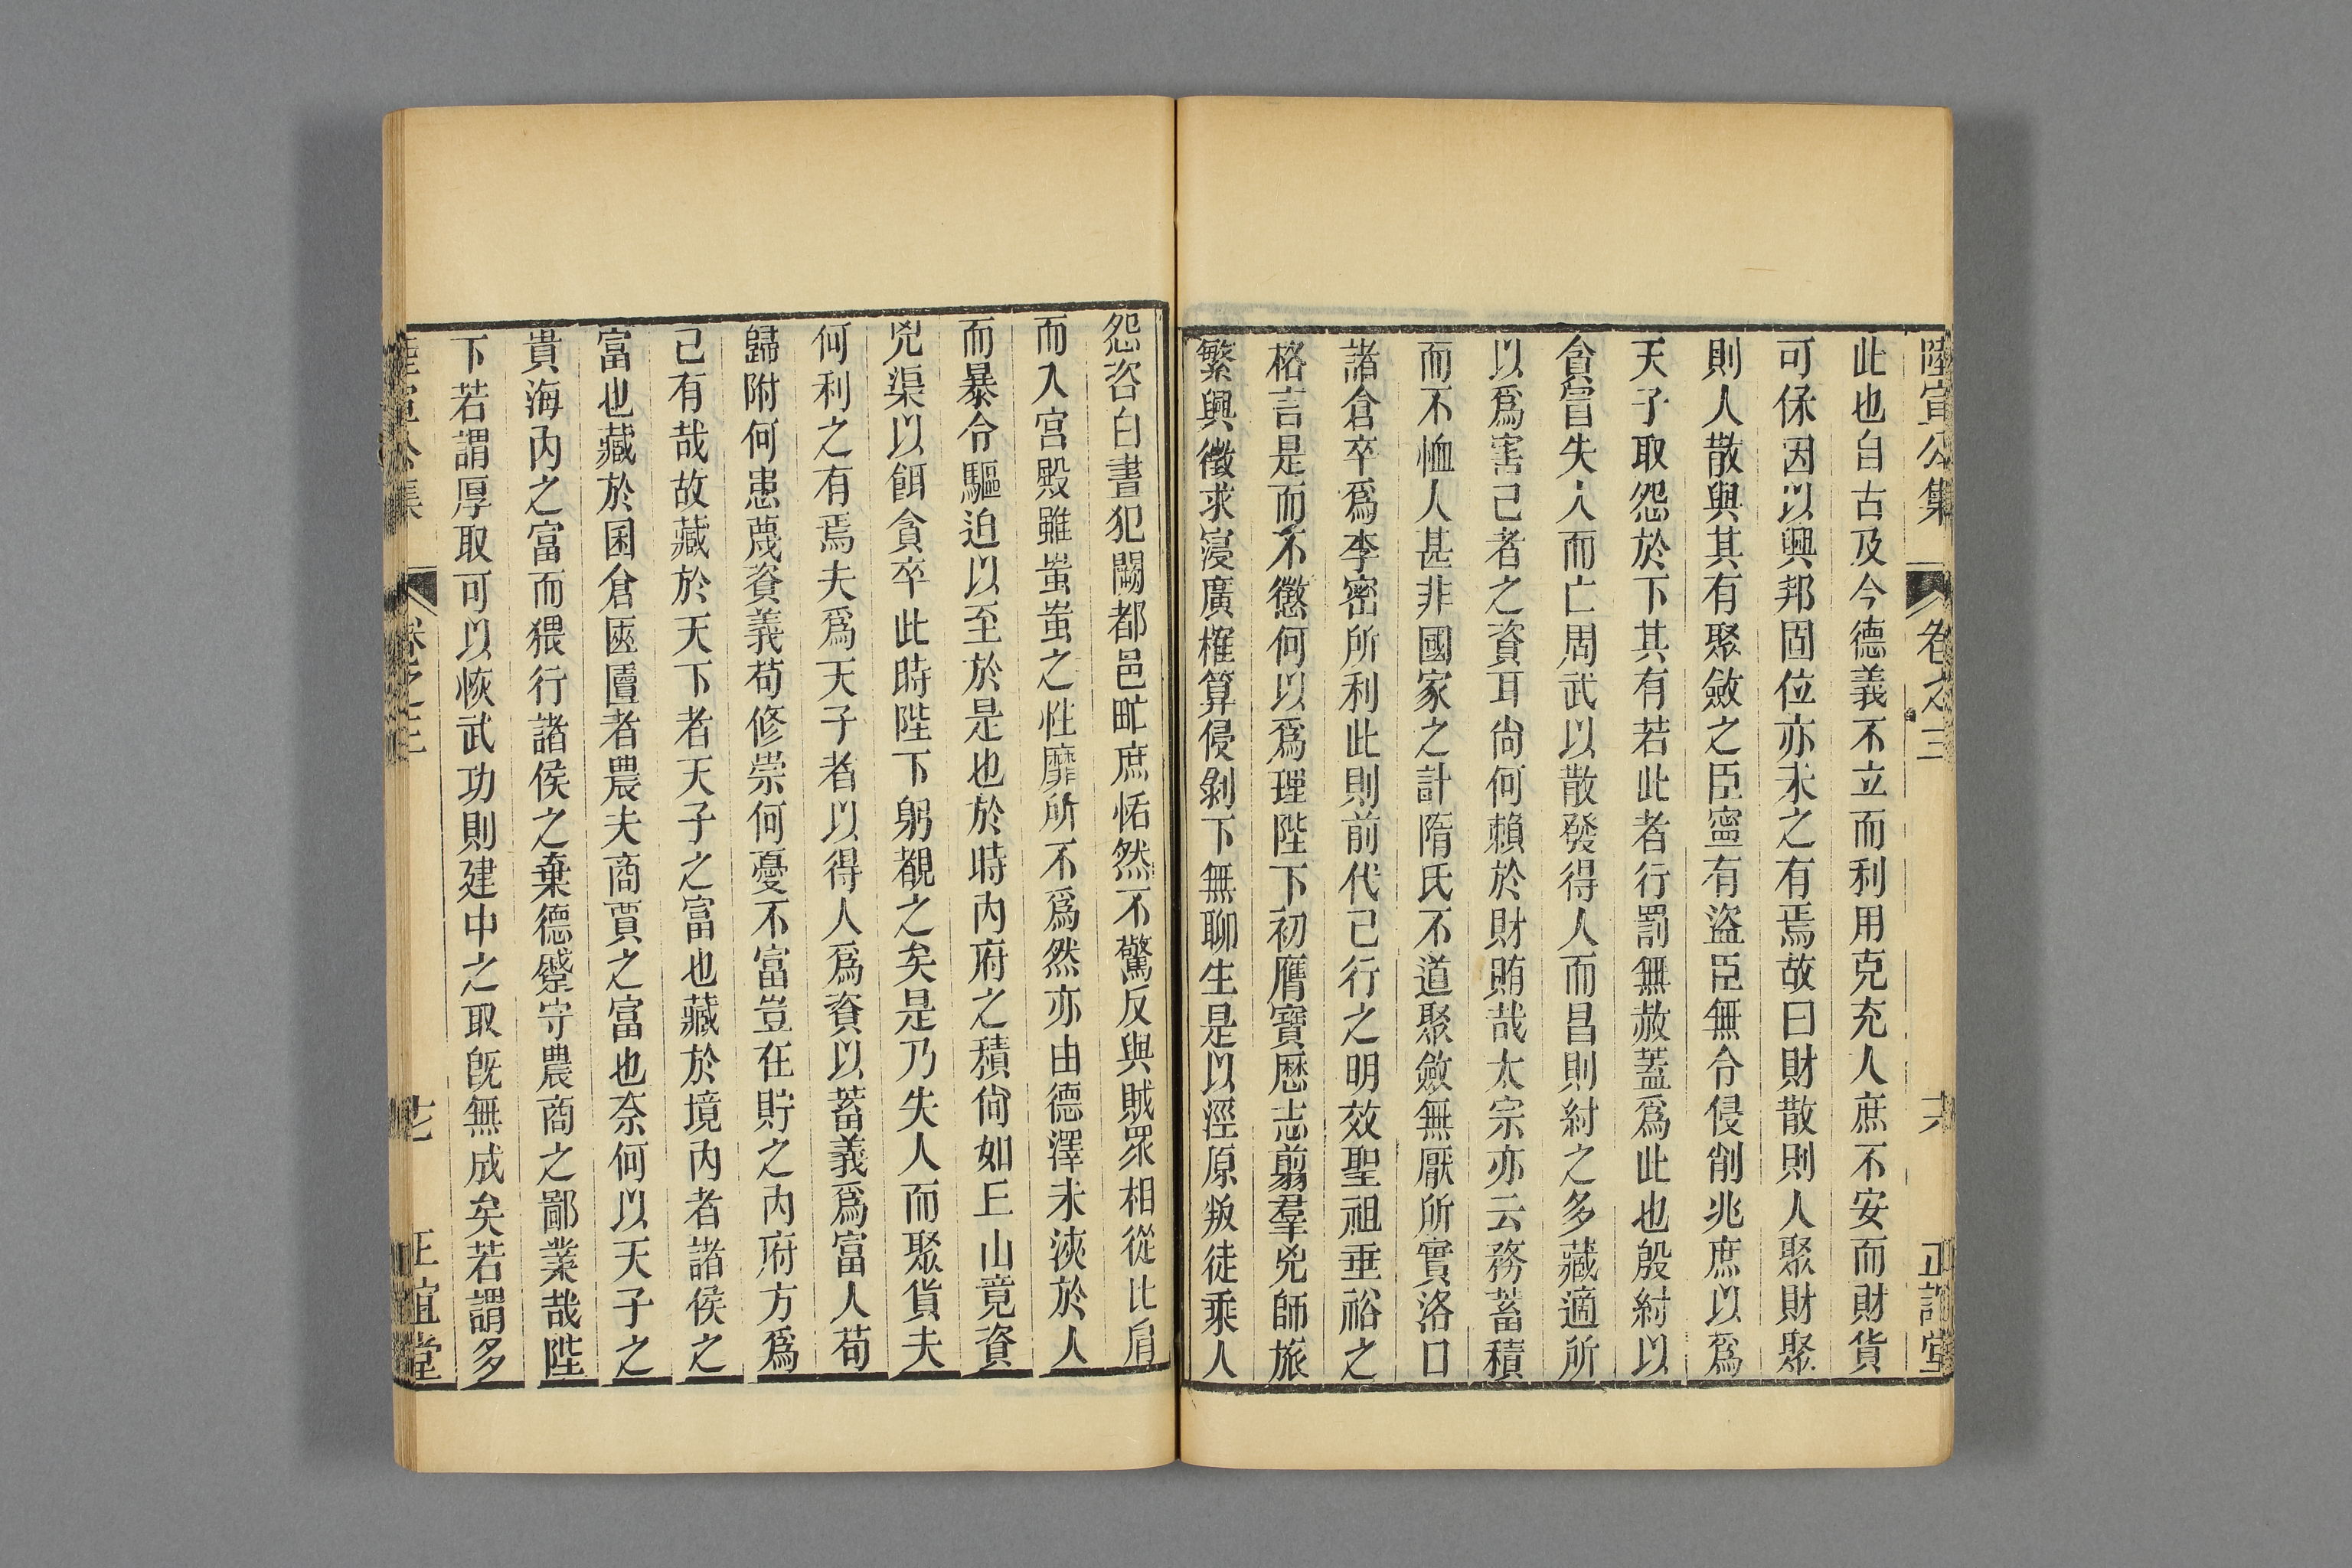 陸宣公集 卷之三 六 正誼堂
此也自古及今德義不立而利用克充人庶不安而財貨
可保因以興邦固位亦未之有焉故曰財散則人聚財聚
則人散與其有聚斂之臣寧有盜臣無令侵削兆庶以爲
天子取怨於下其有若此者行罰無赦蓋爲此也殷紂以
貪冒失人而亡周武以散發得人而昌則紂之多藏適所
以爲害己者之資耳尙何賴於財賄哉太宗亦云務蓄積
而不恤人甚非國家之計隋氏不道聚斂無厭所實洛口
諸倉卒爲李密所利此則前代已行之明效聖祖垂裕之
格言是而不懲何以爲理陛下初膺寶歷志翦羣兇師旅
繁興徵求寖廣榷算侵剝下無聊生是以涇原叛徒乘人
怨咨白晝犯闕都邑甿庶恬然不驚反與賊眾相從比肩
而入宮殿雖蚩蚩之性靡所不爲然亦由德澤未浹於人
而暴令驅迫以至於是也於時內府之積尙如丘山竟資
兇渠以餌貪卒此時陛下躬覩之矣是乃失人而聚貨夫
何利之有焉夫爲天子者以得人爲資以蓄義爲富人苟
歸附何患蔑資義苟修崇何憂不富豈在貯之內府方爲
己有哉故藏於天下者天子之富也藏於境內者諸侯之
富也藏於囷倉匧匵者農夫商賈之富也奈何以天子之
貴海內之富而猥行諸侯之棄德蹙守農商之鄙業哉陛
下若謂厚取可以恢武功則建中之取旣無成矣若謂多
陸宣公集 卷之三 七 正誼堂